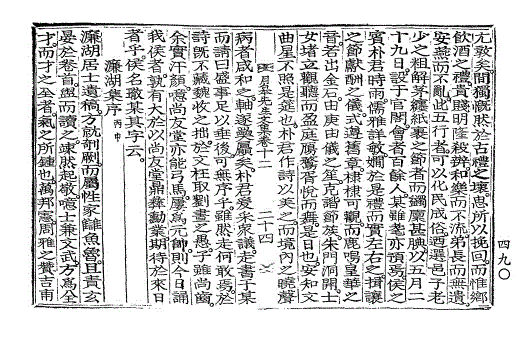 尤敦矣間獨慨然於古禮之壞思所以挽回而惟鄕
飮酒之禮貴賤明隆殺辨和樂而不流弟長而無遺
安燕而不亂此五行者可以化民成俗迺選邑子老
少之粗解茅纏紙裹之節者而錫廩甚腆以五月二
十九日設于官閣會者百餘人某雖耄亦預焉侯之
賓朴君時雨儒雅詳敏嫺於是禮而實左右之揖讓
之節獻酬之儀式遵舊章棣棣可觀而鹿鳴皇華之
音若出金石由庚由儀之笙克諧節族朱門洞開士
女堵立觀聽而盈庭鳲鶩胥悅而舞是日也安知文
曲星不照是筵也朴君作詩以美之而境內之曉聲
月皐先生文集卷十二
二十四
病者咸和之軸遂夥屬矣朴君愛采衆議走書于某
而請曰盛事足以垂後可無序乎雖然走何敢焉於
詩旣不藏魏收之拙於文枉取劉晝之愚乎雖尙齒
余實汗顔噫尙友堂亦能弓馬屢爲元帥則今日誦
我侯者孰有大於以尙友堂鼎彝勳業期待於來日
者乎侯名璥某其字云
濂湖集序 丙申
濂湖居士遺稿方就剞劂而屬性家讎魚魯且責玄
晏於卷首盥而讀之竦然起敬噫士兼文武方爲全
才而才之全者氣之所鍾也萬邦憲周雅之贊吉甫
四九〇